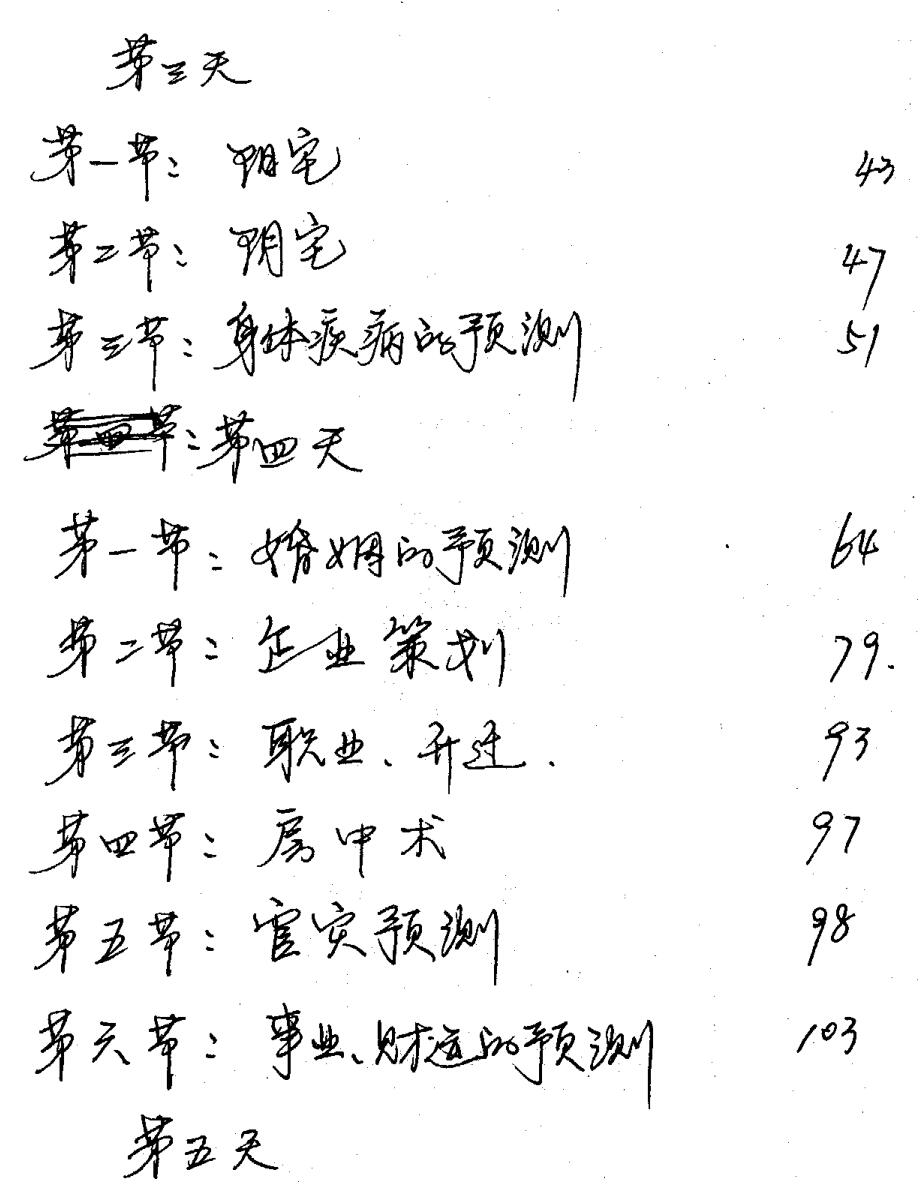 第三天
第一节: 阳宅 43
第二节: 阴宅 47
第三节: 身体疾病的预测 51
第四天
第一节: 婚姻的预测 64
第二节: 企业策划 79.
第三节: 职业、升迁. 93
第四节: 房中术 97
第五节: 官灾预测 98
第六节: 事业、财运的预测 103
第五天